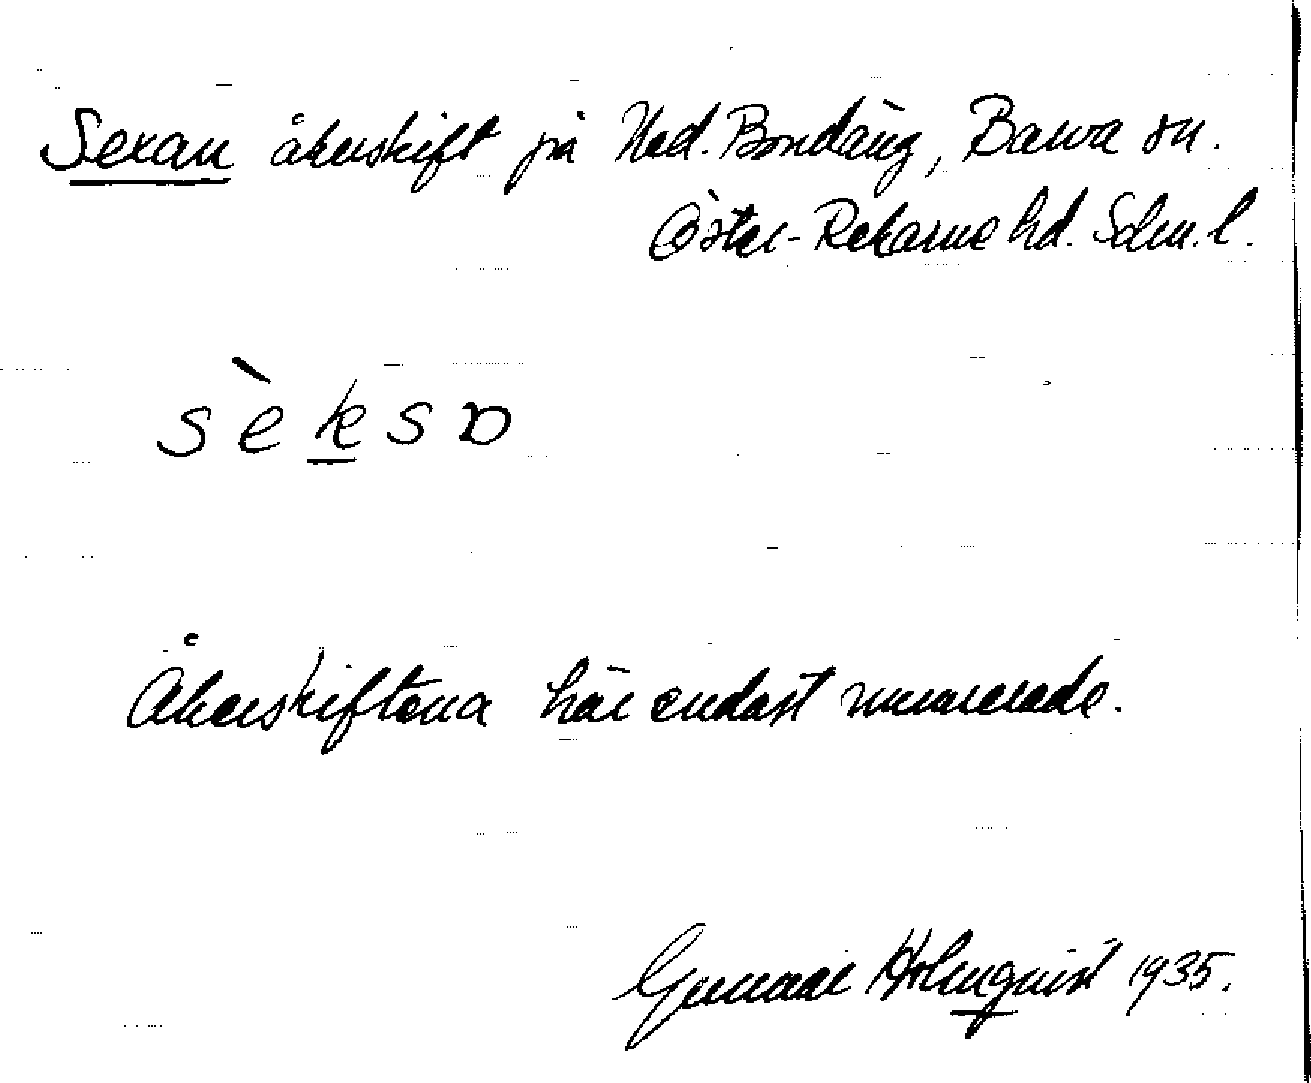 Sexan åkerskift på Ned. Bondäng, Barva sn.
Öster-Rekarne hd. Södm. l.
sèksɒ
Åkerskiftena här endast numrerade.
Gunnar Holmquist 1935.